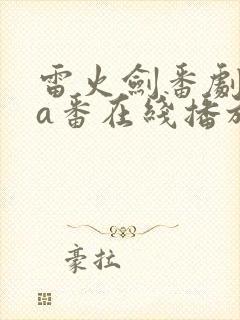 雷火劍番劇
a番在綫播放
豪拉